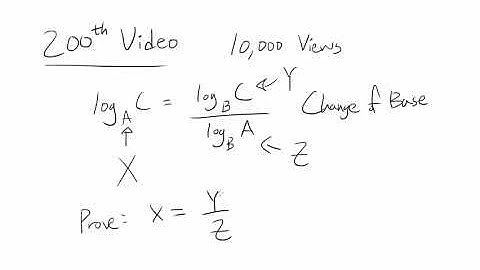 200th Video 10,000 Views
log_A C = log_B C / log_B A ← Y Change of Base
↑ ← Z
X
Prove: X = Y / Z